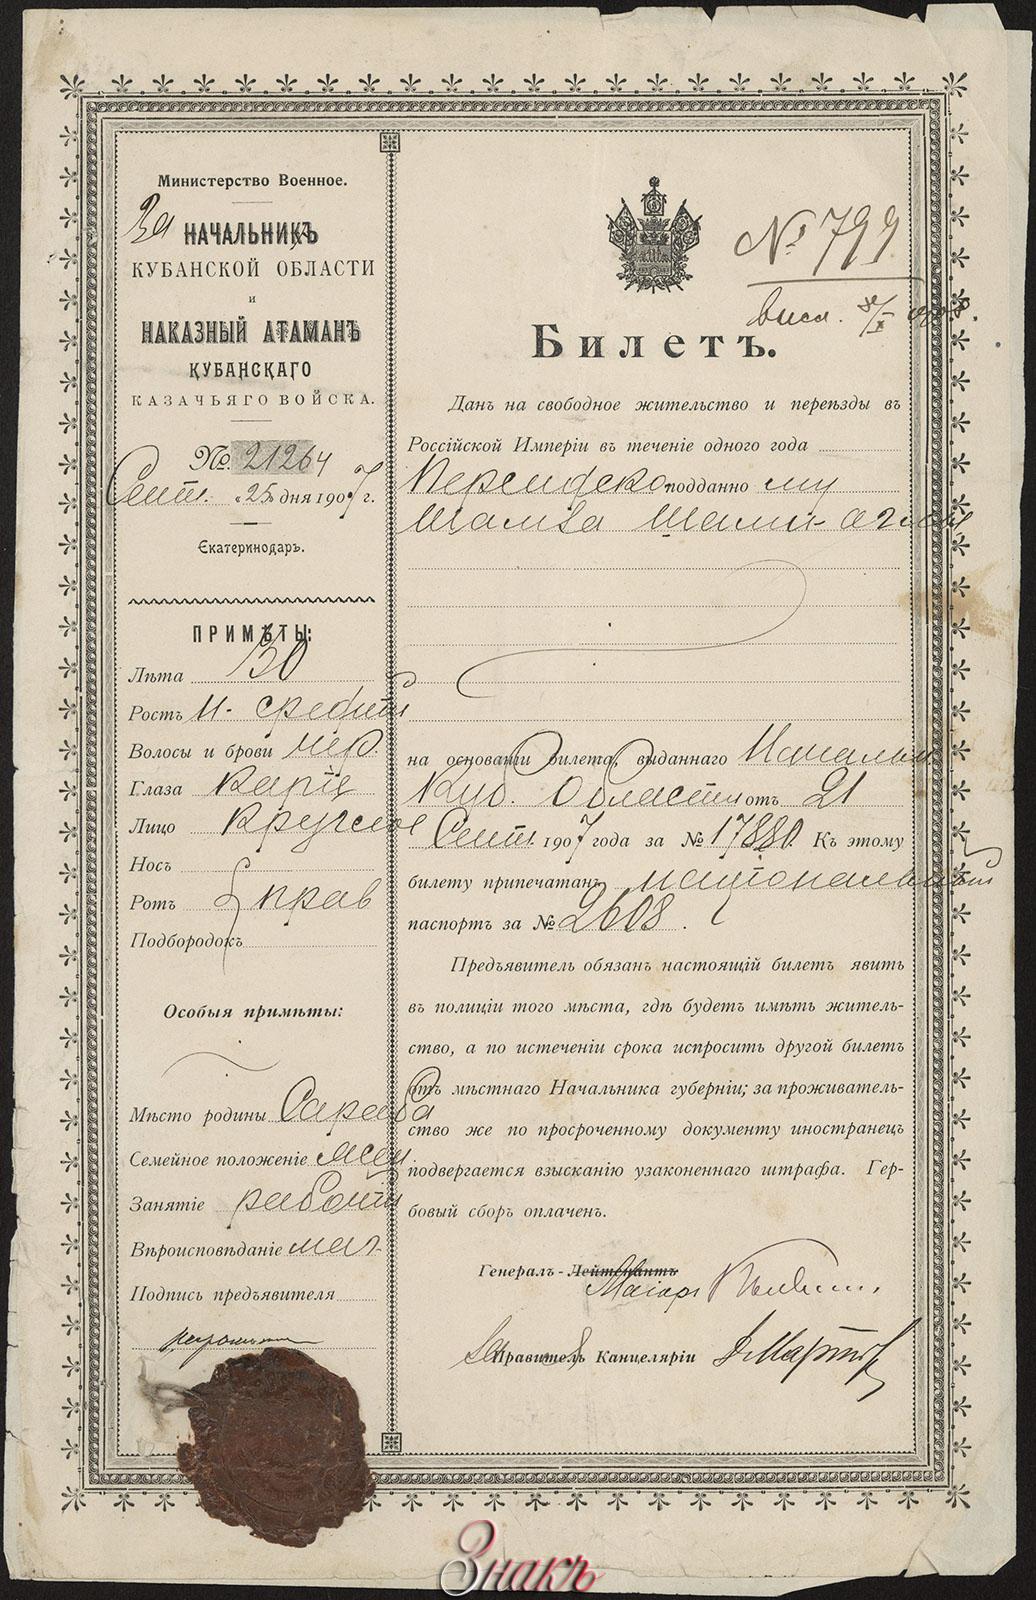 Министерство Военное.
За НАЧАЛЬНИКЪ
КУБАНСКОЙ ОБЛАСТИ
и
НАКАЗНЫЙ АТАМАНЪ
КУБАНСКАГО
КАЗАЧЬЯГО ВОЙСКА.
№ 21264
Сент. „25„ дня 1907 г.
Екатеринодаръ.
ПРИМѢТЫ:
Лѣта 30
Ростъ н. средн
Волосы и брови чер.
Глаза Каріе
Лицо Круглое
Носъ
Ротъ } прав
Подбородокъ
Особыя примѣты:
Мѣсто родины
Семейное положеніе жен.
Занятіе работн
Вѣроисповѣданіе маг.
Подпись предъявителя
№ 799
Билетъ.
Данъ на свободное жительство и переѣзды въ
Россійской Имперіи въ теченіе одного года
Персидско подданно му
на основаніи билета, выданнаго Начальн
Куб. Области отъ 21
Сент. 1907 года за № 17880. Къ этому
билету припечатанъ національный
паспортъ за № 2608.
Предъявитель обязанъ настоящій билетъ явить
въ полиціи того мѣста, гдѣ будетъ имѣть житель-
ство, а по истеченіи срока испросить другой билетъ
отъ мѣстнаго Начальника губерніи; за проживатель-
ство же по просроченному документу иностранецъ
подвергается взысканію узаконеннаго штрафа. Гер-
бовый сборъ оплаченъ.
Генералъ-Лейтенантъ
Маіоръ
За Правитель Канцеляріи
Знакъ